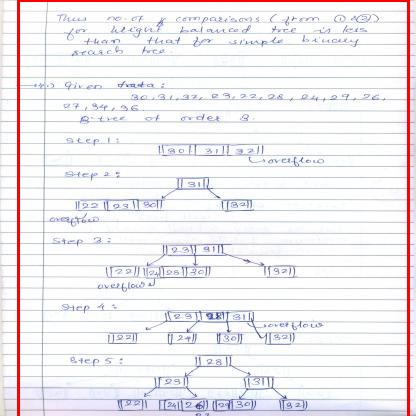 Thus no. of comparisons (from ① & ②)
for height balanced tree is less
than that for simple binary
search tree.
Given data:
30, 31, 32, 23, 22, 28, 24, 29, 26,
27, 34, 36.
B-tree of order 3.
Step 1:
30 31 32
overflow
Step 2:
31
22 23 30 32
overflow
Step 3:
23 31
22 24 28 30 32
overflow
Step 4:
23 28 31
overflow
22 24 30 32
Step 5:
28
23 31
22 24 26 29 30 32